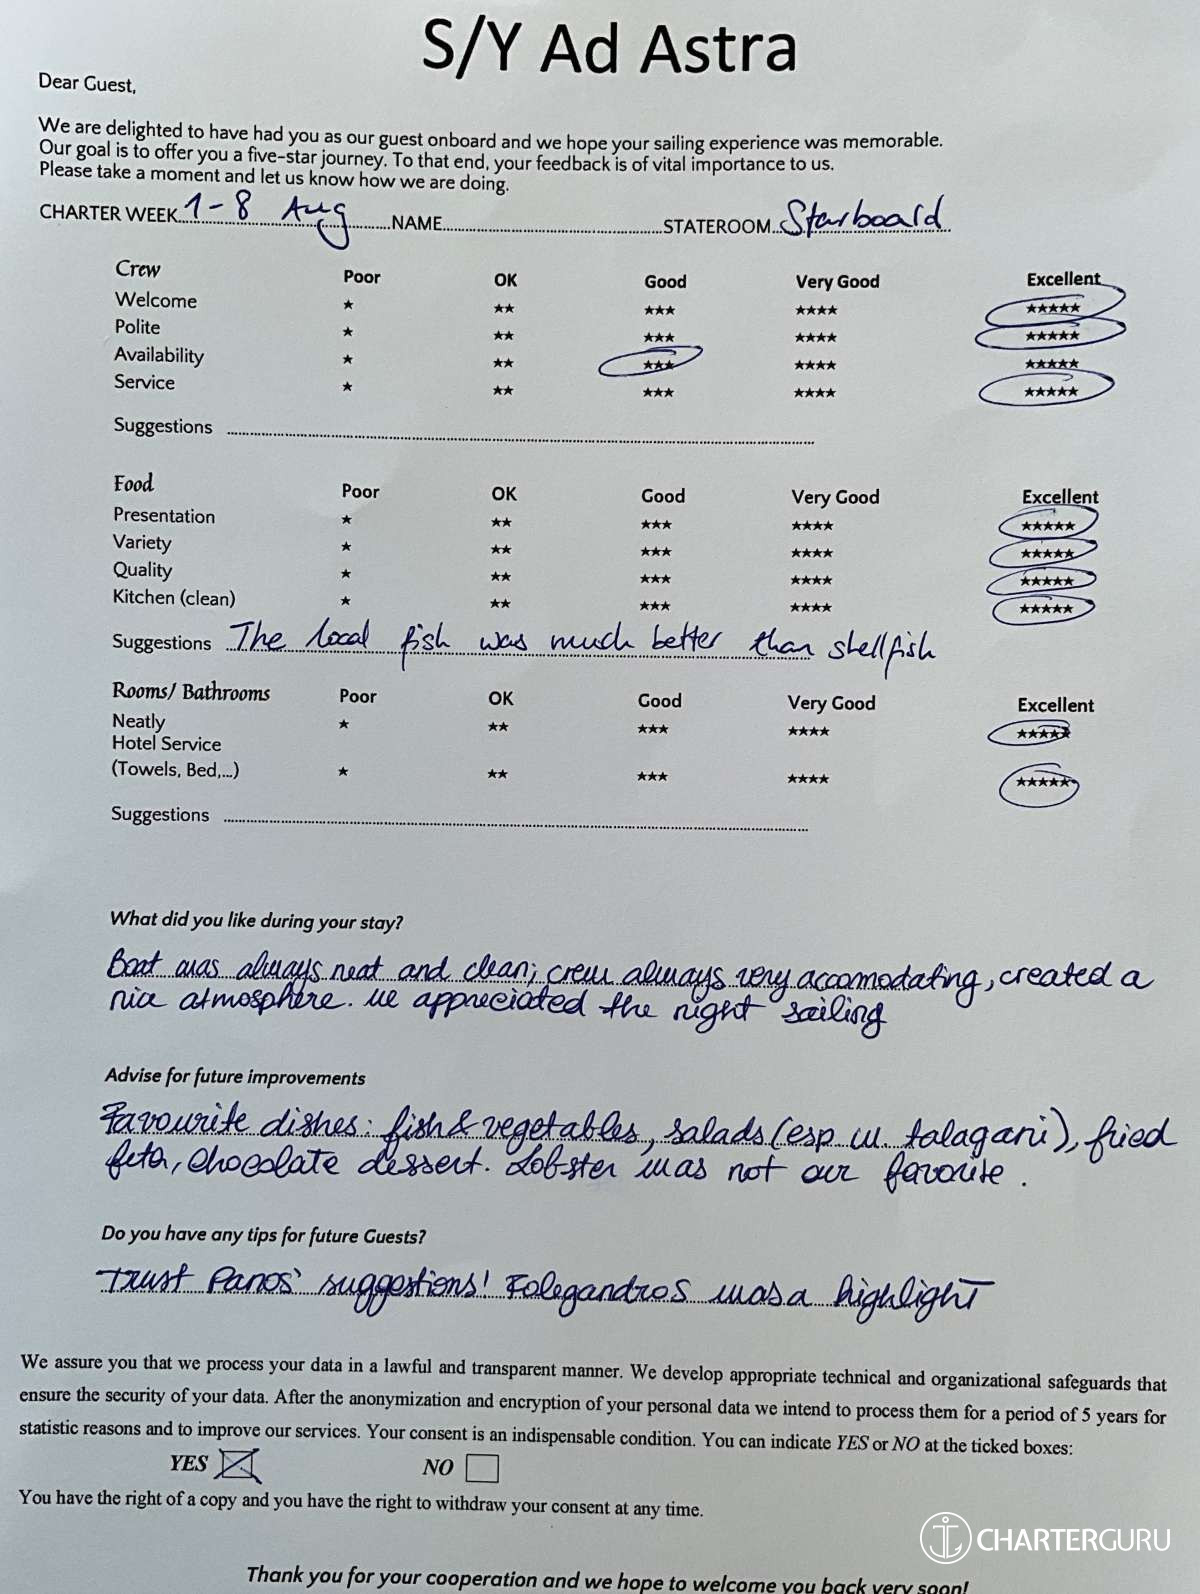 S/Y Ad Astra
Dear Guest,
We are delighted to have had you as our guest onboard and we hope your sailing experience was memorable.
Our goal is to offer you a five-star journey. To that end, your feedback is of vital importance to us.
Please take a moment and let us know how we are doing.
CHARTER WEEK 1-8 Aug NAME STATEROOM Starboard
Crew Poor OK Good Very Good Excellent
Welcome ★ ★★ ★★★ ★★★★ ★★★★★
Polite ★ ★★ ★★★ ★★★★ ★★★★★
Availability ★ ★★ ★★★ ★★★★ ★★★★★
Service ★ ★★ ★★★ ★★★★ ★★★★★
Suggestions
Food Poor OK Good Very Good Excellent
Presentation ★ ★★ ★★★ ★★★★ ★★★★★
Variety ★ ★★ ★★★ ★★★★ ★★★★★
Quality ★ ★★ ★★★ ★★★★ ★★★★★
Kitchen (clean) ★ ★★ ★★★ ★★★★ ★★★★★
Suggestions The local fish was much better than shellfish
Rooms/ Bathrooms Poor OK Good Very Good Excellent
Neatly ★ ★★ ★★★ ★★★★ ★★★★★
Hotel Service
(Towels, Bed,...) ★ ★★ ★★★ ★★★★ ★★★★★
Suggestions
What did you like during your stay?
Boat was always neat and clean; crew always very accomodating, created a
nice atmosphere. We appreciated the night sailing
Advise for future improvements
Favourite dishes: fish & vegetables, salads (esp w. talagani), fried
feta, chocolate dessert. Lobster was not our favorite.
Do you have any tips for future Guests?
Trust Panos' suggestions! Folegandros was a highlight
We assure you that we process your data in a lawful and transparent manner. We develop appropriate technical and organizational safeguards that
ensure the security of your data. After the anonymization and encryption of your personal data we intend to process them for a period of 5 years for
statistic reasons and to improve our services. Your consent is an indispensable condition. You can indicate YES or NO at the ticked boxes:
YES NO
You have the right of a copy and you have the right to withdraw your consent at any time.
CHARTERGURU
Thank you for your cooperation and we hope to welcome you back very soon!